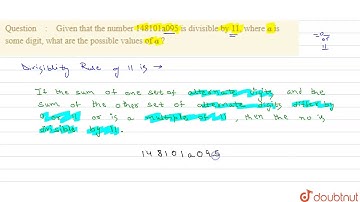 Question : Given that the number 148101a095 is divisible by 11, where a is
some digit, what are the possible values of a ?
= 0
or
11
Divisibility Rule of 11 is →
If the sum of one set of alternate digits and the
sum of the other set of alternate digits differ by
0 or is a multiple of 11, then the no is
divisible by 11.
148101a095
doubtnut